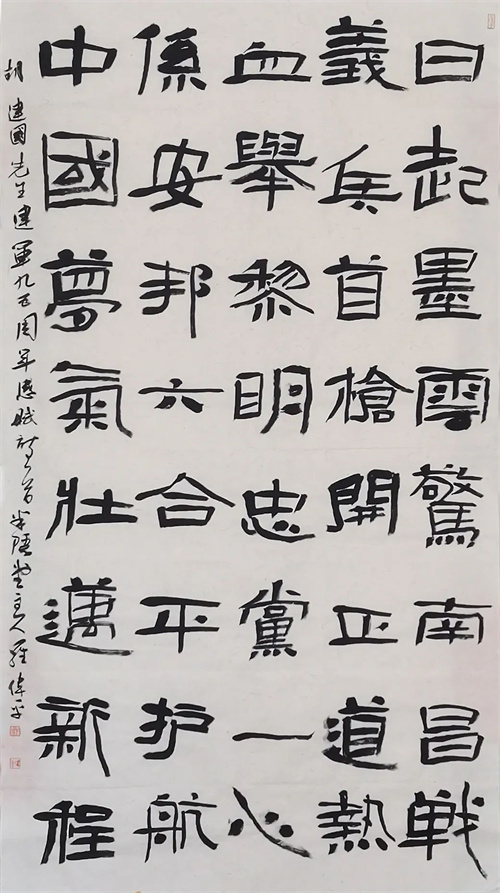 日起墨雲驚南昌戦
義兵首槍開正道熱
血舉黎明忠黨一心
係安邦六合平护航
中國夢氣壯邁新程
胡建國先生建軍九五周年感賦詩一首 半隱堂主人 羅偉平